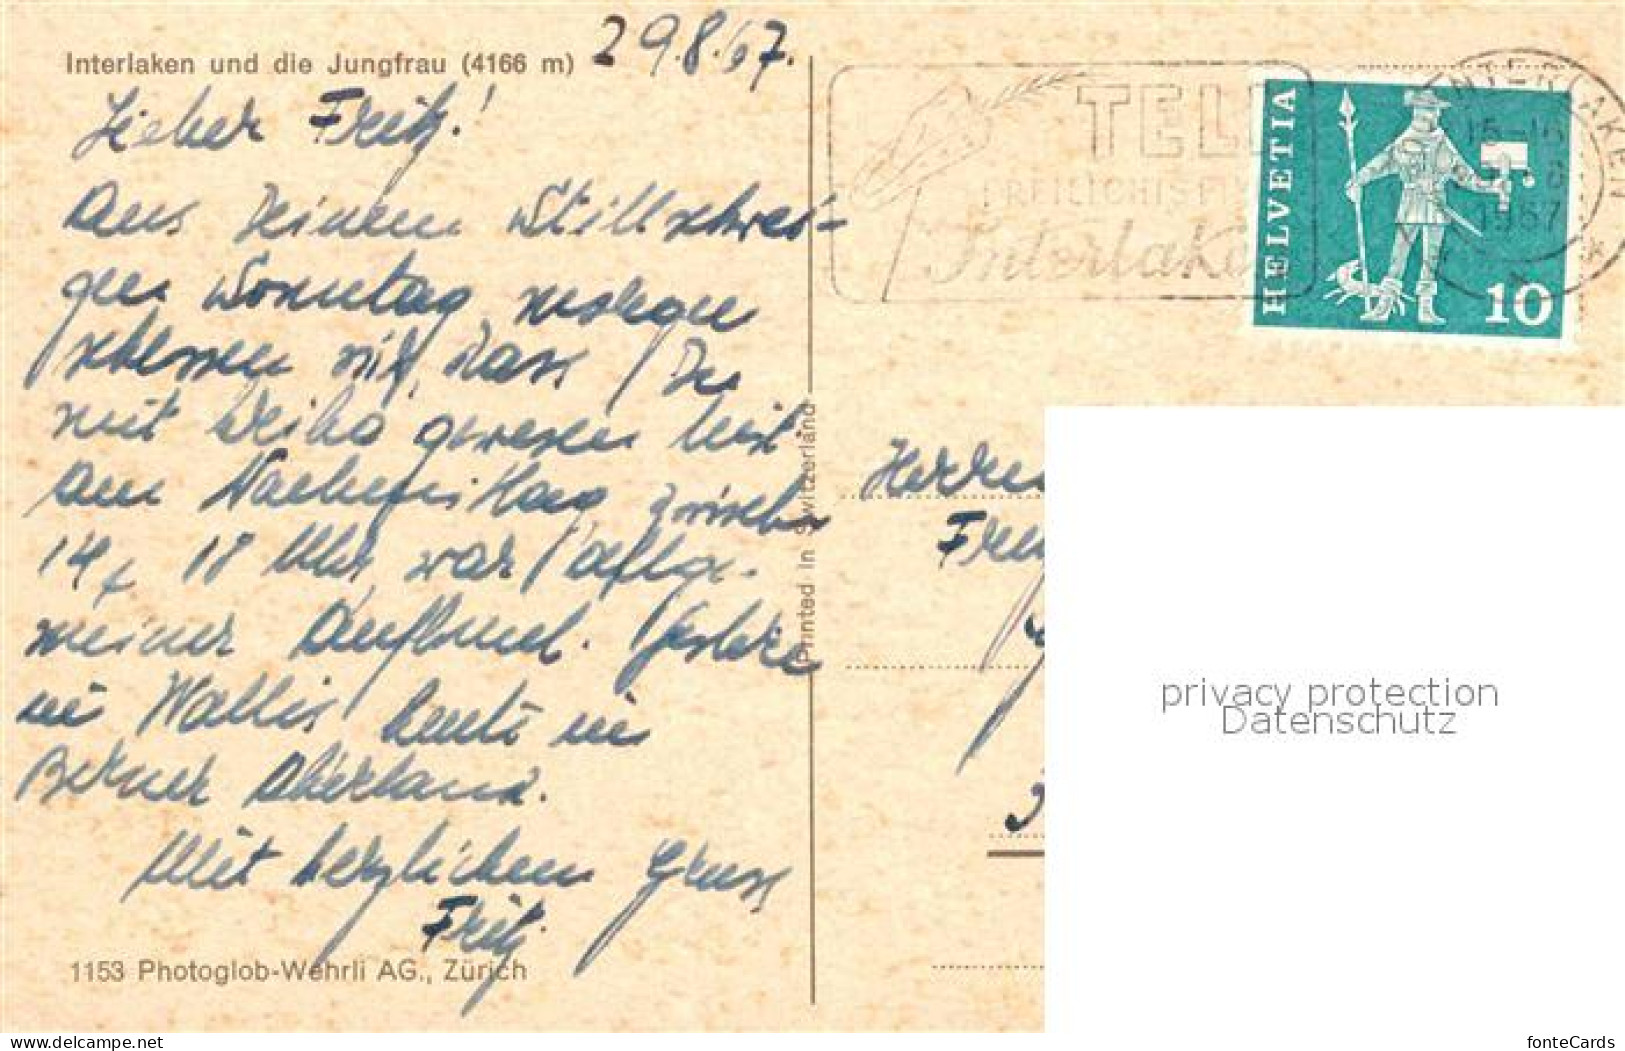 29.8.67.
Interlaken und die Jungfrau (4166 m)
Lieber Fritz!
Aus Deinem Stillschwei-
gen Sonntag morgen
schliessen wir, dass Du
mit Weiko gewesen bist.
Am Nachmittag zwischen
14 + 18 Uhr war allge-
meiner Aufbruch. Gestern
im Wallis heute im
Berner Oberland.
Mit herzlichem Gruss
Fritz
1153 Photoglob-Wehrli AG., Zürich
Printed in Switzerland
TELL
FREILICHTSPIELE
Interlaken
INTERLAKEN
15-16
1967
HELVETIA
10
Herrn
privacy protection
Datenschutz
www.delcampe.net
fonteCards